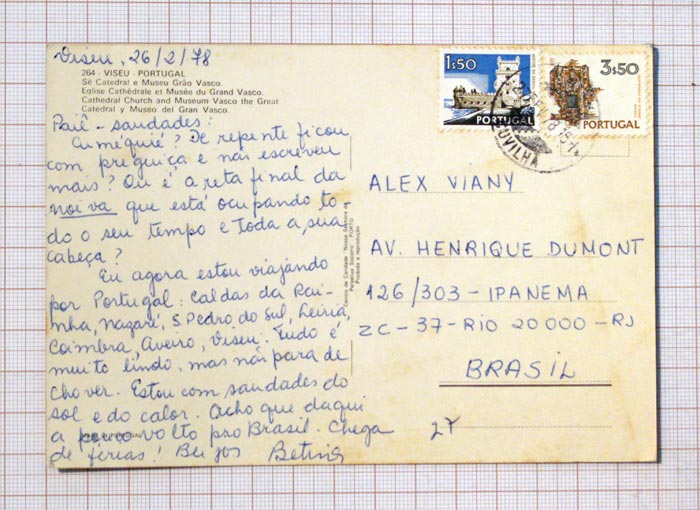 Viseu, 26/2/78
264 - VISEU - PORTUGAL
Sé Catedral e Museu Grão Vasco.
Eglise Cathédrale et Musée du Grand Vasco.
Cathedral Church and Museum Vasco the Great
Catedral y Museo del Gran Vasco.
Paiê - saudades:
Cumé quié? De repente ficou
com preguiça e não escreveu
mais? Ou é a reta final da
noiva que está ocupando to
do o seu tempo e toda a sua
cabeça?
Eu agora estou viajando
por Portugal: Caldas da Rai-
nha, Nazaré, S. Pedro do Sul, Leiria,
Coimbra, Aveiro, Viseu. Tudo é
muito lindo, mas não para de
chover. Estou com saudades do
sol e do calor. Acho que daqui
a pouco volto pro Brasil. Chega
de férias! Beijos Betina
PORTO
Proibida a reprodução
1$50
PORTUGAL
3$50
PORTUGAL
COVILHÃ
ALEX VIANY
AV. HENRIQUE DUMONT
126/303 - IPANEMA
ZC - 37 - RIO 20000 - RJ
BRASIL
27